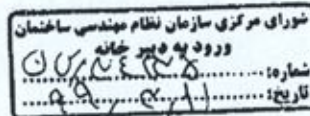 شورای مرکزی سازمان نظام مهندسی ساختمان
ورود به دبیر خانه
شماره:
تاریخ: ۹۹,۳,۱۱